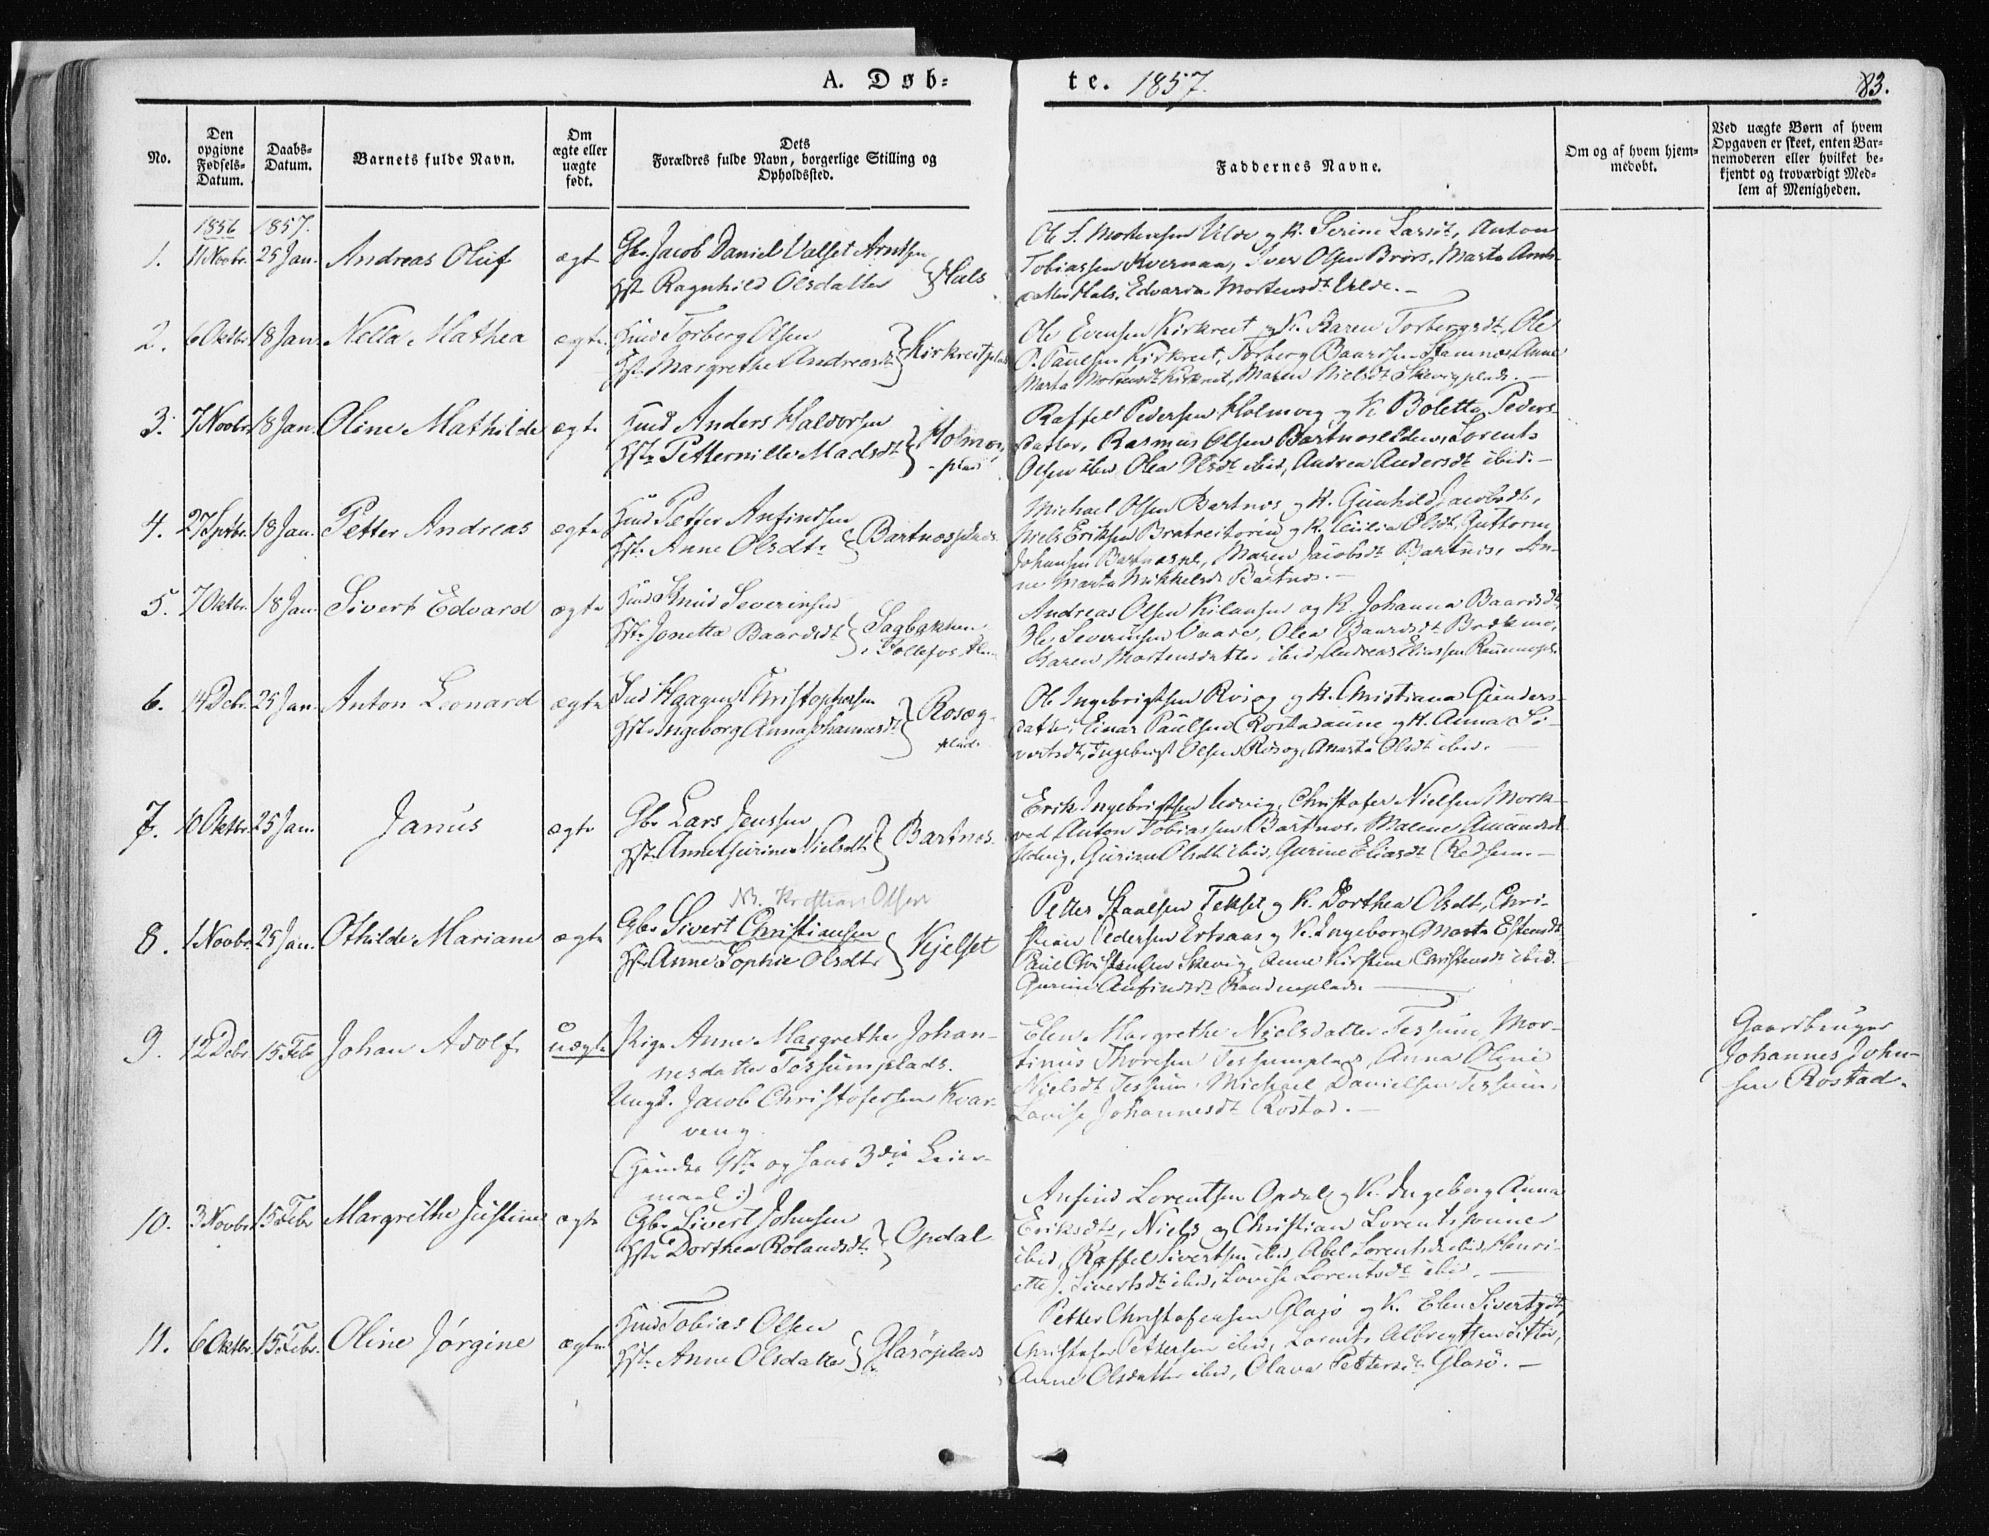 A. Døb=
te. 1857.
83.
No.
Den opgivne Fødsels-Datum.
Daabs-Datum.
Barnets fulde Navn.
Om ægte eller uægte født.
Dets Forældres fulde Navn, borgerlige Stilling og Opholdssted.
Faddernes Navne.
Om og af hvem hjem-medøbt.
Ved uægte Børn af hvem Opgaven er skeet, enten Bar-nemoderen eller hvilket be-kjendt og troværdigt Med-lem af Menigheden.
1856 1857.
1. 11 Novbr. 25 Jan. Andreas Oluf ægte
Gbr. Jacob Daniel Valset Arntsen
Hst. Ragnhild Olsdatter } Hals
Ole S. Mortensen Ulve og K. Serine Larsdt, Anton
Tobiassen Kvernaa, Iver Olsen Brørs, Marta Arnts-
datter Hals, Edvarda Mortensdt Ulve. -
2. 6 Oktbr. 18 Jan. Nella Mathea ægte
Hmd Torberg Olsen
Hst. Margrethe Andreasdt } Kirkreitplads
Ole Evensen Kirkreit og K. Karen Torbergsdt, Ole
P. Paulsen Kirkreit, Torberg Baardsen Stamnes, Anne
Marta Mortensdt Kirkreit, Maren Nielsdt Skevigplads. -
3. 7 Novbr. 18 Jan. Oline Mathilde ægte
Hmd Anders Haldorsen
Hst. Petternille Madsdt } Holmvig
-plads
Raffel Pedersen Holmvig og K. Boletta Peders-
datter, Rasmus Olsen Bartnes, Lorents
Olsen ibid, Olea Olsdt ibid, Andrea Andersdt ibid. -
4. 27 Septbr. 18 Jan. Petter Andreas ægte
Hmd Petter Anfindsen
Hst. Anne Olsdtr } Bartnesplads
Michael Olsen Bartnes og K. Gunhild Jacobsdt,
Niels Eriksen Bratreit og K. Olsdt, Guttorm
Johansen Bartnespl, Maren Jacobsdt Bartnes, An-
ne Marta Mikkelsdt Bartnes. -
5. 7 Oktbr. 18 Jan. Sivert Edvard ægte
Hmd Knud Severinsen
Hst. Jonetta Baardsdt } Sagbakken
Andreas Olsen og K. Johanna Baardsdt,
Ole Severinsen Vaade, Olea Baardsdt
Karen Mortensdatter ibid, Andreas Eliassen
6. 14 Debr. 25 Jan. Anton Leonard ægte
Ind Haagen Christophersen
Hst. Ingeborg Anna Johannesdt } Rosæg-
plads.
Ole Ingebrigtsen Rosæg og K. Christiana Gunders-
datter, Einar Paulsen Rostadaune og K. Anna Si-
vertsdt, Ingebrigt Olsen Rosæg, Marta Olsdt ibid. -
7. 10 Oktbr. 25 Jan. Janus ægte
Gbr Lars Jenssen
Hst. Anne Gurine Nielsdt } Bartnes.
Erik Ingebrigtsen Utvig, Christofer Nielsen Mork-
ved, Anton Tobiassen Bartnes, Malene Amundsdt
Utvig, Gurine Olsdt ibid, Gurine Eliasdt Rodsem. -
NB. Kristian Olsen
8. 1 Novbr. 25 Jan. Othilde Mariane ægte
Gbr Sivert Christiansen
Hst. Anne Sophie Olsdtr } Kjelset
Petter Staalsen Tekset og K. Dorthea Olsdt, Chri-
stian Pedersen Ertsaas og K. Ingeborg Marta Estensdt
Paul Christensen Skevig, Anne Kirstine Christensdt ibid.
Gurine Anfindsdt
9. 12 Debr. 15 Febr. Johan Adolf. uægte
Pige Anne Margrethe Johan-
nesdatter Tessumplads.
Ungk. Jacob Christofersen Kvar-
veng.
(Hendes 1ste og hans 3die Leier-
maal:)
Elen Margrethe Nielsdatter Tessum, Mor-
tinus Thoresen Tessumplads, Anna Oline
Nielsdt Tessum, Michael Danielsen Tessum,
Lovise Johannesdt Rostad. -
Gaardbruger
Johannes John-
sen Rostad.
10. 3 Novbr. 15 Febr. Margrethe Justine ægte
Gbr Sivert Johnsen
Hst. Dorthea Rolandsdt } Opdal
Anfind Lorentsen Opdal og K. Ingeborg Anna
Eriksdt, Niels og Christian Lorentssønner
ibid, Raffel Sivertsen ibid, Abel Lorentsdt ibid, Henri-
ette J. Sivertsdt ibid, Lovise Lorentsdt ibid. -
11. 6 Oktbr. 15 Febr. Oline Jørgine ægte
Hmd Tobias Olsen
Hst. Anne Olsdatter } Glasøplads
Petter Christofersen Glasø og K. Elen Sivertsdt,
Christofer Pettersen ibid, Lorents Albregtsen
Anne Olsdatter ibid, Olava Pettersdt Glasø. -